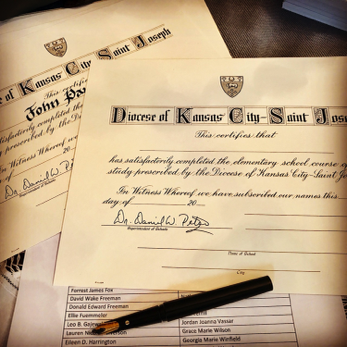 Diocese of Kansas City-Saint Joseph
This certifi
John Pa
satisfactorily completed the
Dr. Daniel W. Peters
Diocese of Kansas City-Saint Jose
This certifies that
has satisfactorily completed the elementary school course of
study prescribed by the Diocese of Kansas City-Saint Jo
In Witness Whereof we have subscribed our names this
day of 20
Dr. Daniel W. Peters
Superintendent of Schools
Name of School
City
Forrest James Fox
David Wake Freeman
Donald Edward Freeman
Ellie Fuemmeler
Leo B.
Lauren
Eileen D. Harrington
Jordan Joanna Vassar
Grace Marie Wilson
Georgia Marie Winfield